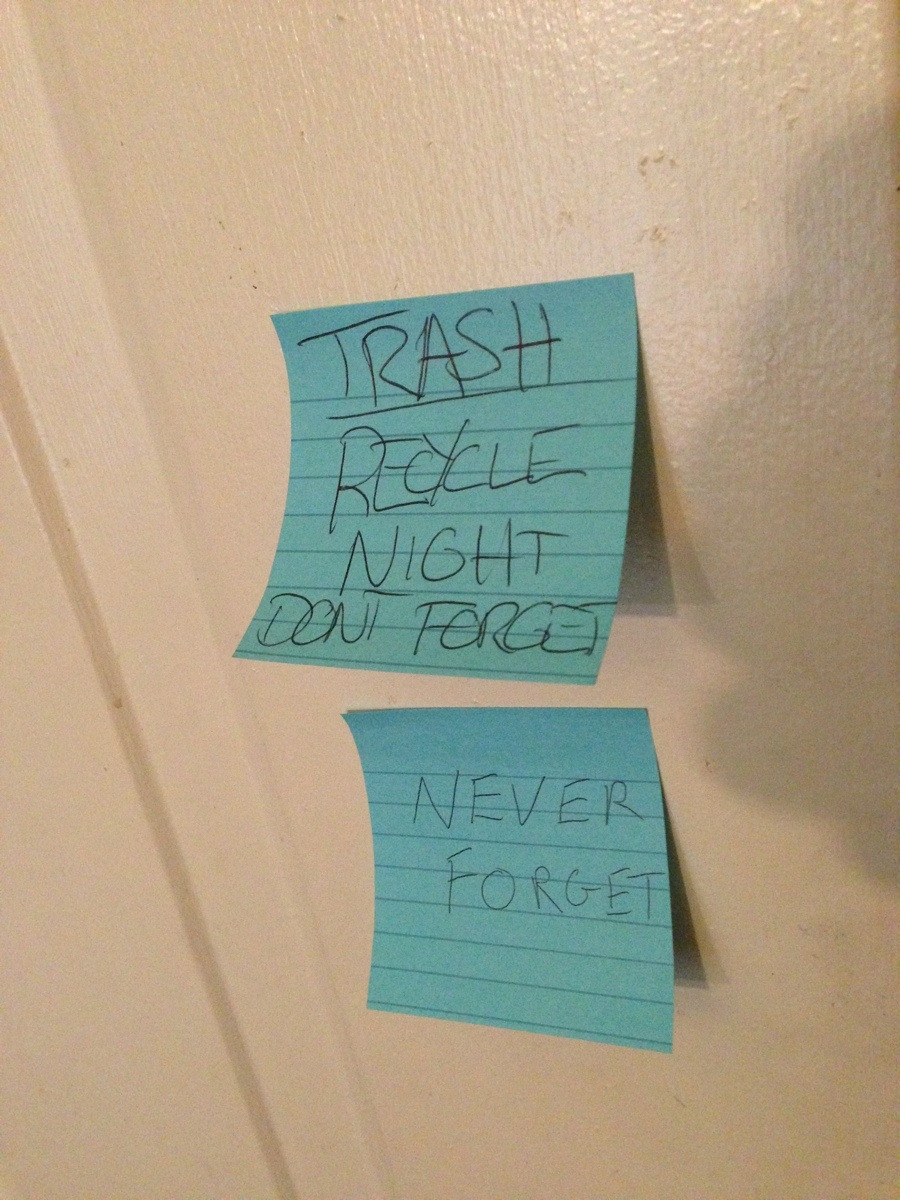 TRASH
RECYCLE
NIGHT
DONT FORGET
NEVER
FORGET